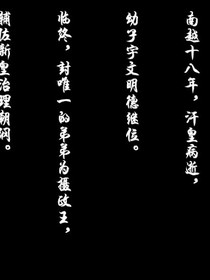 南越十八年，汗皇病逝，
幼子宇文明德继位。
临终，封唯一的弟弟为摄政王，
辅佐新皇治理朝纲。